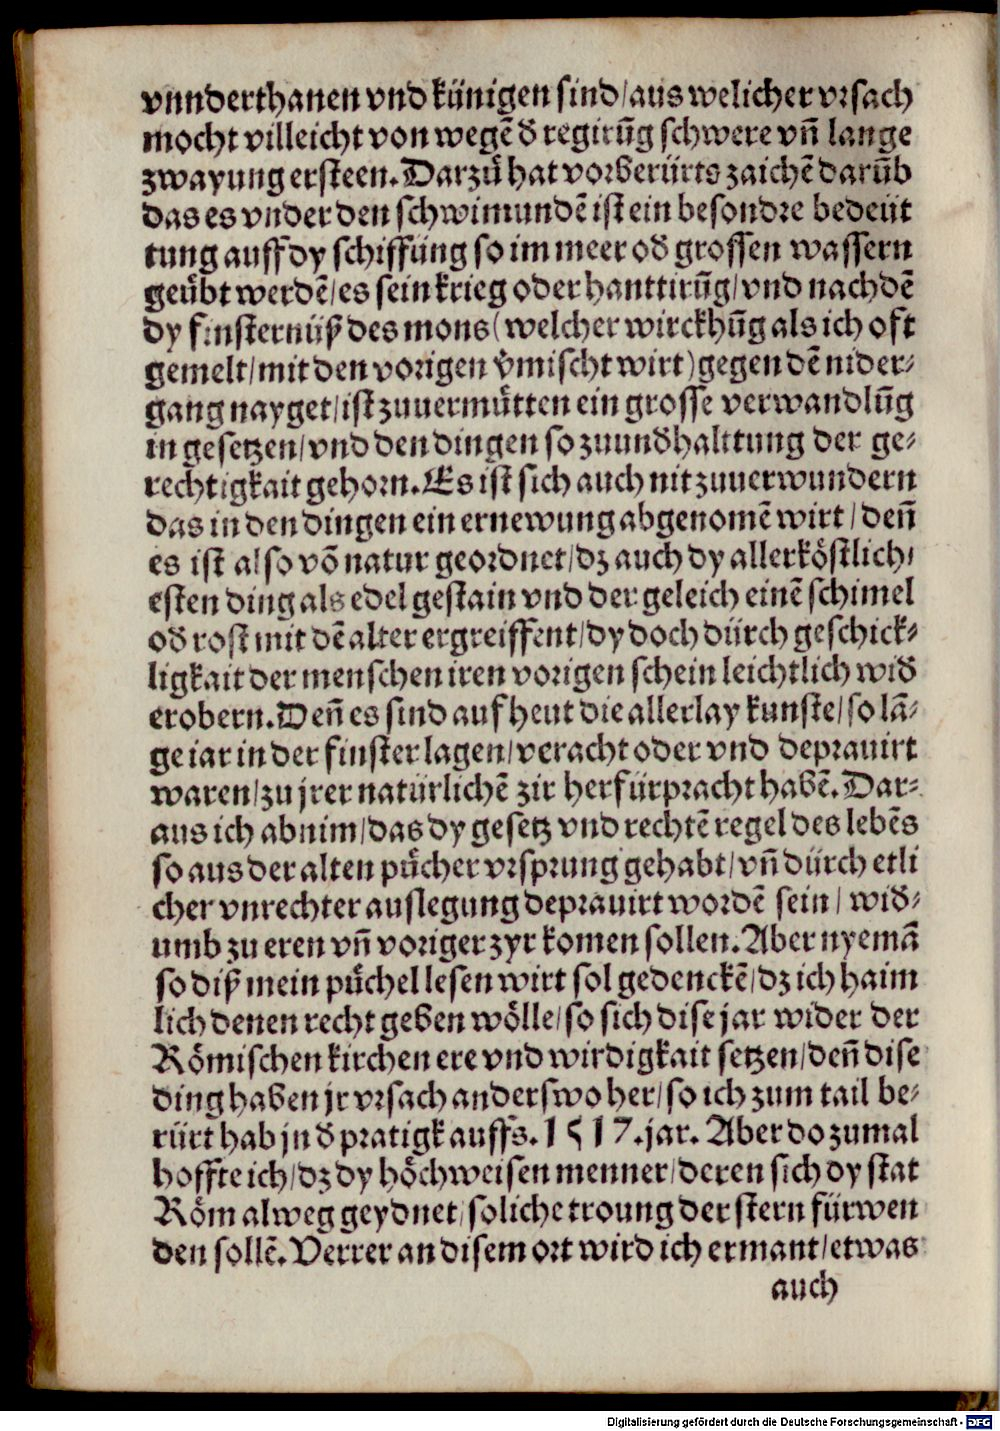 vnnderthanen vnd künigen sind/aus welicher vrsach
mocht villeicht von wegē d̕ regirūg schwere vn̄ lange
zwayung ersteen. Darzů hat vorberürts zaichē darūb
das es vnder den schwimundē ist ein besondre bedeüt
tung auff dy schiffüng so im meer od̕ grossen wassern
geůbt werdē/es sein krieg oder hanttirūg/vnd nachdē
dy finsternüß des mons(welcher wirckhūg als ich oft
gemelt/mit den vorigen v̄mischt wirt)gegen dē nider⸗
gang nayget/ist zuuermůtten ein grosse verwandlūg
in gesetzen/vnd den dingen so zuund̕halttung der ge⸗
rechtigkait gehorn. Es ist sich auch nit zuuerwundern
das in den dingen ein ernewung abgenomē wirt/den̄
es ist also vō natur geordnet/dz auch dy allerköstlich/
esten ding als edel gestain vnd der geleich einē schimel
od̕ rost mit dē alter ergreiffent/dy doch dürch geschick⸗
ligkait der menschen iren vorigen schein leichtlich wid̕
erobern. Den̄ es sind auf heut die allerlay kunste/so lā⸗
ge iar in der finster lagen/veracht oder vnd deprauirt
waren/zu jrer natürlichē zir herfürpracht habē. Dar⸗
aus ich abnim/das dy gesetz vnd rechtē regel des lebēs
so aus der alten půcher vrsprung gehabt/vn̄ dürch etli
cher vnrechter auslegung deprauirt wordē sein/ wid̕⸗
umb zu eren vn̄ voriger zyr komen sollen. Aber nyemā
so diß mein půchel lesen wirt sol gedenckē/dz ich haim
lich denen recht geben wölle/so sich dise jar wider der
Römischen kirchen ere vnd wirdigkait setzen/den̄ dise
ding haben jr vrsach anderswo her/so ich zum tail be⸗
rürt hab jn d̕ pratigk auffs. 1517. jar. Aber do zumal
hoffte ich/dz dy höchweisen menner/deren sich dy stat
Röm alweg geydnet/soliche troung der stern fürwen
den sollē. Verrer an disem ort wird ich ermant/etwas
auch
Digitalisierung gefördert durch die Deutsche Forschungsgemeinschaft - DFG